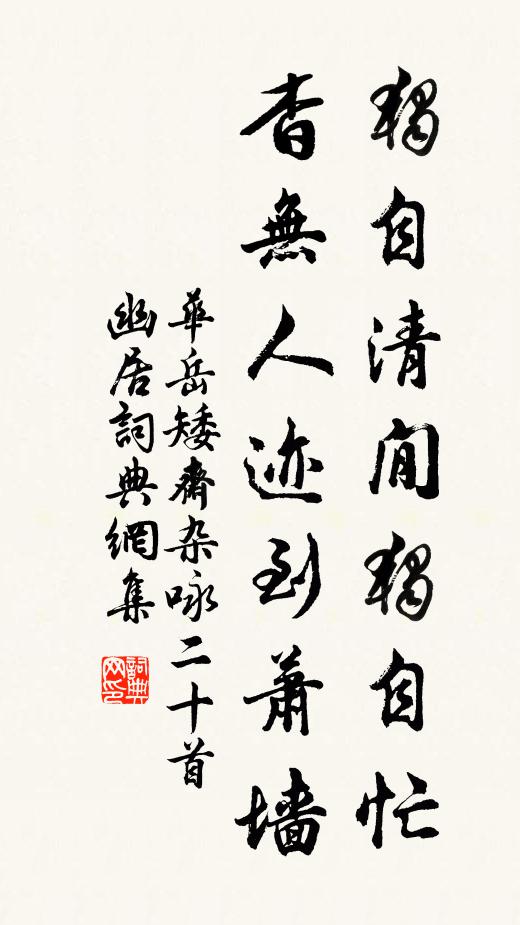 獨自清閒獨自忙
杳無人迹到蕭墻
華岳矮齋杂咏二十首
幽居詞典網集
詞典网印